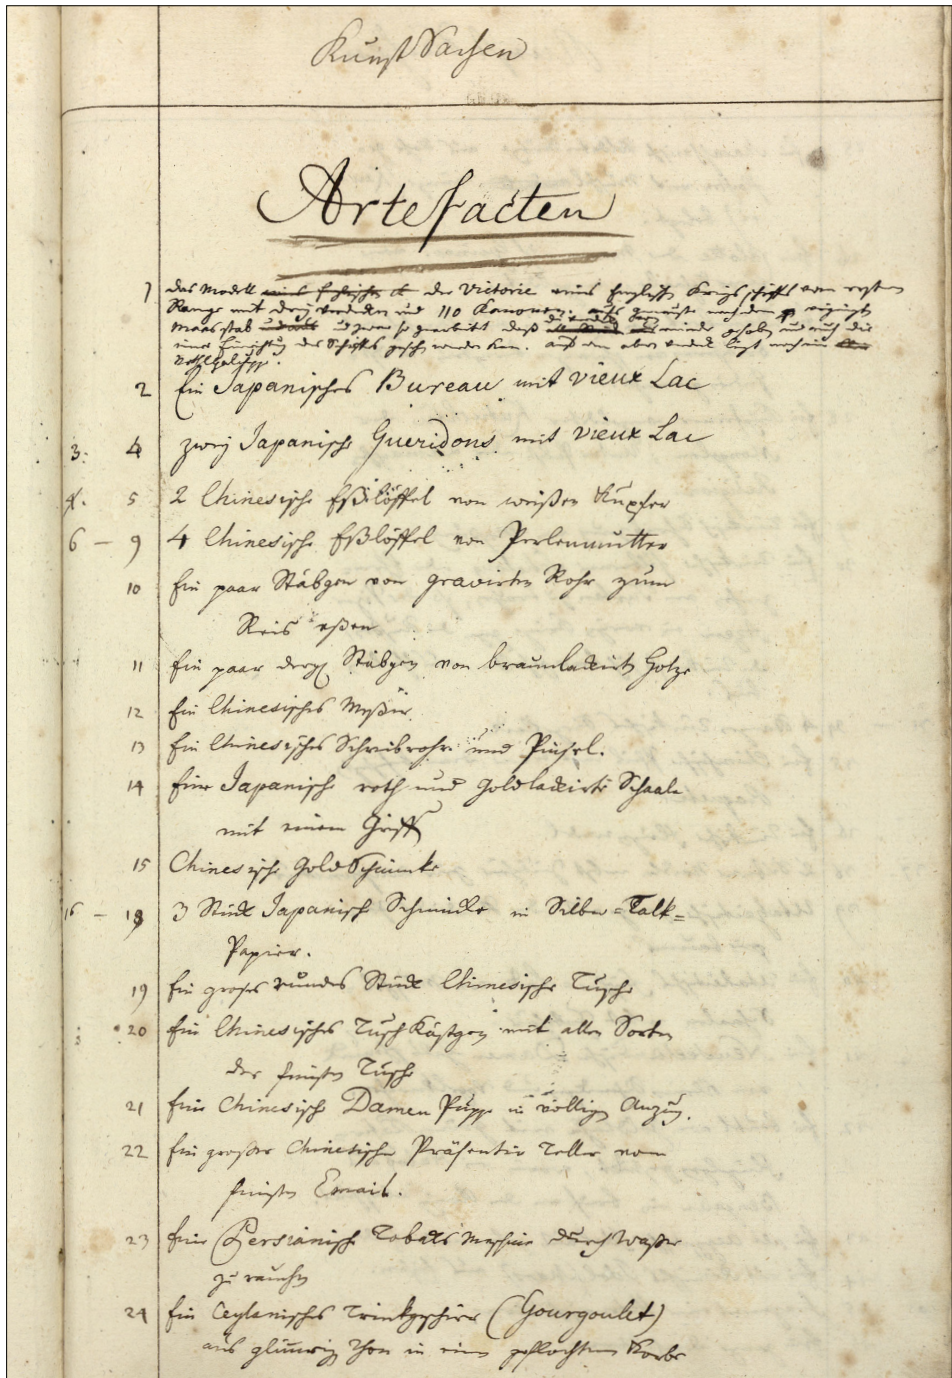 Kunst Sachen
Artefacten
1 das Modell der Victorie eines Englischen Kriegs schiffs vom ersten
Range mit drey Verdecken und 110 Kanonen, aufs genauste nach dem
Maasstab und zwar so gearbeitet daß die werden gehoben und auch die
innere Einrichtung des Schiffes gesehen werden kan. auf dem obern liegt noch ein
2 Ein Japanisches Bureau mit vieux Lac
3. 4 zwey Japanische Gueridons mit vieux Lac
4. 5 2 Chinesische Eßlöffel von weißen Kupfer
6 – 9 4 Chinesische Eßlöffel von Perlenmutter
10 Ein paar Stäbgen von gravirten Rohr zum
Reis eßen
11 Ein paar dergl Stäbgen von braunlackirten Holze
12 Ein Chinesisches Meßer
13 Ein Chinesisches Schreibrohr und Pinsel.
14 Eine Japanische roth und Goldlackirte Schaale
mit einem Griff
15 Chinesische Gold Schminke
16 – 18 3 Stück Japanische Schminke in Silber=Talk=
Papier.
19 Ein großes rundes Stück Chinesische Tusche
20 Ein Chinesisches Tusch Kästgen mit allen Sorten
der feinsten Tusche
21 Eine Chinesische Damen Puppe in völligen Anzug.
22 Ein großer Chinesischer Präsentir Teller vom
feinsten Email.
23 Eine Persianische Tobaks Maschine durch Waßer
zu rauchen
24 Ein Ceylanisches Trinkgeschirr (Gourgoulet)
aus Thon in einem geflochtenen Korbe